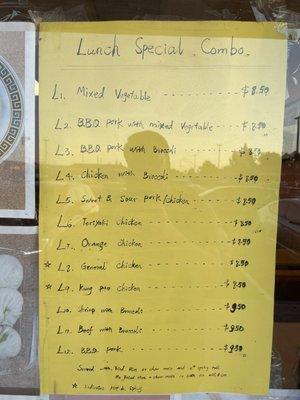 Lunch Special Combo
L1. Mixed Vegetable ------------ $8.50
L2. B.B.Q pork with mixed Vegetable ----- $8.50
L3. B.B.Q pork with Broccoli ------------ $8.50
L4. Chicken with Broccoli ------------ $8.50
L5. Sweet & Sour pork/chicken ---------- $8.50
L6. Teriyaki chicken ------------ $8.50
L7. Orange Chicken ------------ $8.50
* L8. General chicken ------------ $8.50
* L9. Kung pao chicken ------------ $8.50
L10. Shrimp with Broccoli ------------ $9.50
L11. Beef with Broccoli ------------ $9.50
L12. B.B.Q pork ------------ $9.50
Served with Fried Rice or chow mein and
* indicates Hot & Spicy